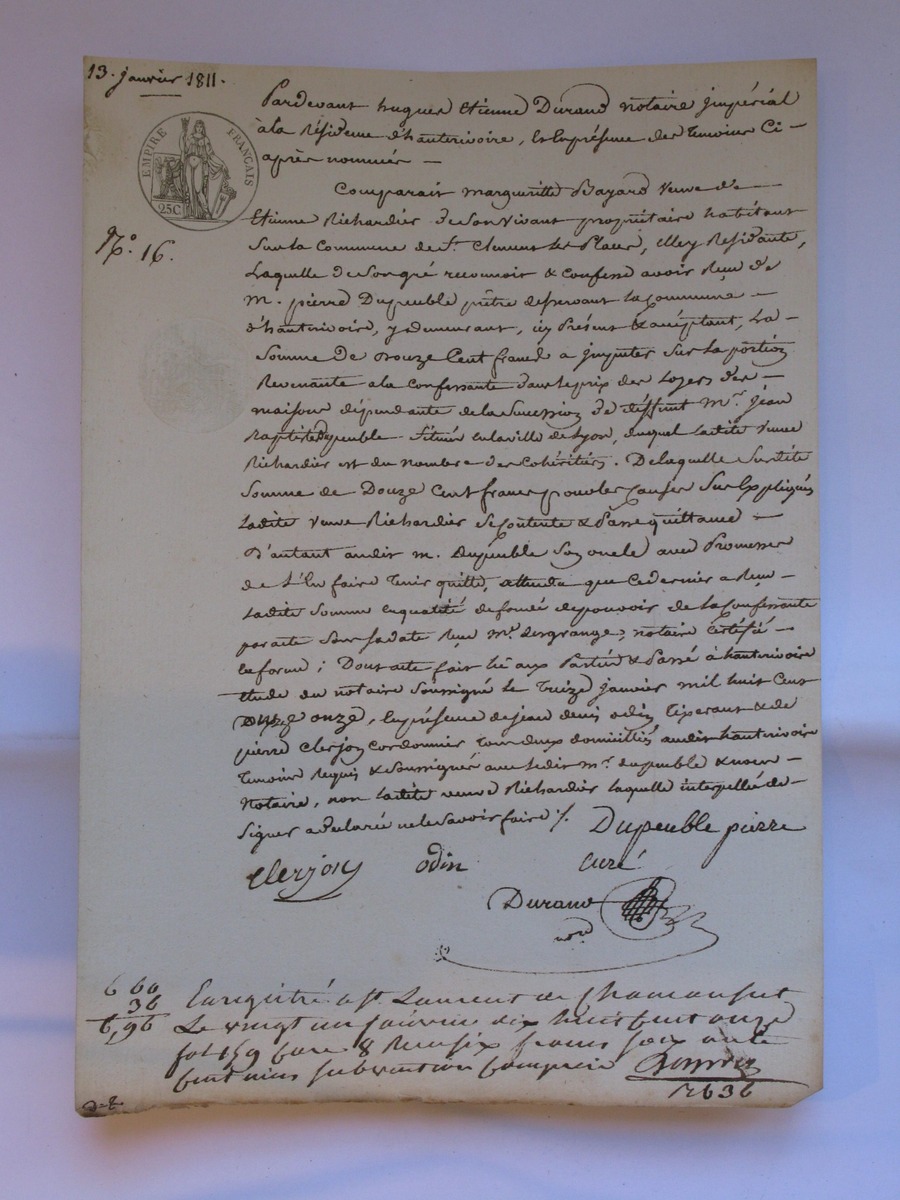 13. janvier 1811.
EMPIRE FRANÇAIS
25C
N.° 16.
Pardevant hugues Etienne Durand notaire jmpérial
à la Résidence d'hauterivoire, En la présence des Temoins Ci-
après nommés —
Comparait margueritte Bayard veuve de —
Etienne Richardier de son vivant propriétaire habitant
sur la Commune de St. Clement les Places, elle y Résidante,
Laquelle de son gré reconnoit & Confesse avoir Reçu de
m. pierre Dupeuble prêtre desservant la Commune —
d'hauterivoire, y demeurant, icy Présent & acceptant, La —
Somme de Douze Cent francs a jmputer Sur la portion
Revenante a la Confessante dans le prix des Loyers des —
maisons dépendantes de la Succession de deffunt Mr. jean
Baptiste Dupeuble Situées en la ville de Lyon, duquel ladite veuve
Richardier est du nombre des Cohéritiers. De laquelle Susdite
Somme de Douze Cent francs pour les Causes Sus Expliquées
Ladite veuve Richardier Se Contente & Passe quittance —
D'autant audit m. Dupeuble Son oncle avec Promesse
de L'En faire Tenir quitte, attendu que Ce dernier a Reçu —
Ladite Somme en qualité de fondé de pouvoir de la Confessante
par acte Sous Sa date Reçu Mr. desgrange, notaire Certifié —
en forme; Dont acte fait lû aux Parties & Passé à hauterivoire
Etude du notaire Soussigné Le Treize janvier mil huit Cent
onze, En présence de jean denis odin Tisserant & de
pierre Clerjon Cordonnier Tous deux domicilliés audit hauterivoire
Temoins Requis & Soussignés avec Ledit Mr. dupeuble & nous —
Notaire, non Ladite veuve Richardier laquelle interpellée de —
Signer a declaré ne le Savoir faire ./.
Dupeuble pierre
Clerjon odin curé
Durand
nore
6 60
36
6,96
Enregistré a St Laurent de Chamousset
Le vingt un janvier dix huit Cent onze
fol 159 Case 8 Reçu Six francs Soixante
Cent plus Subvention Comprise